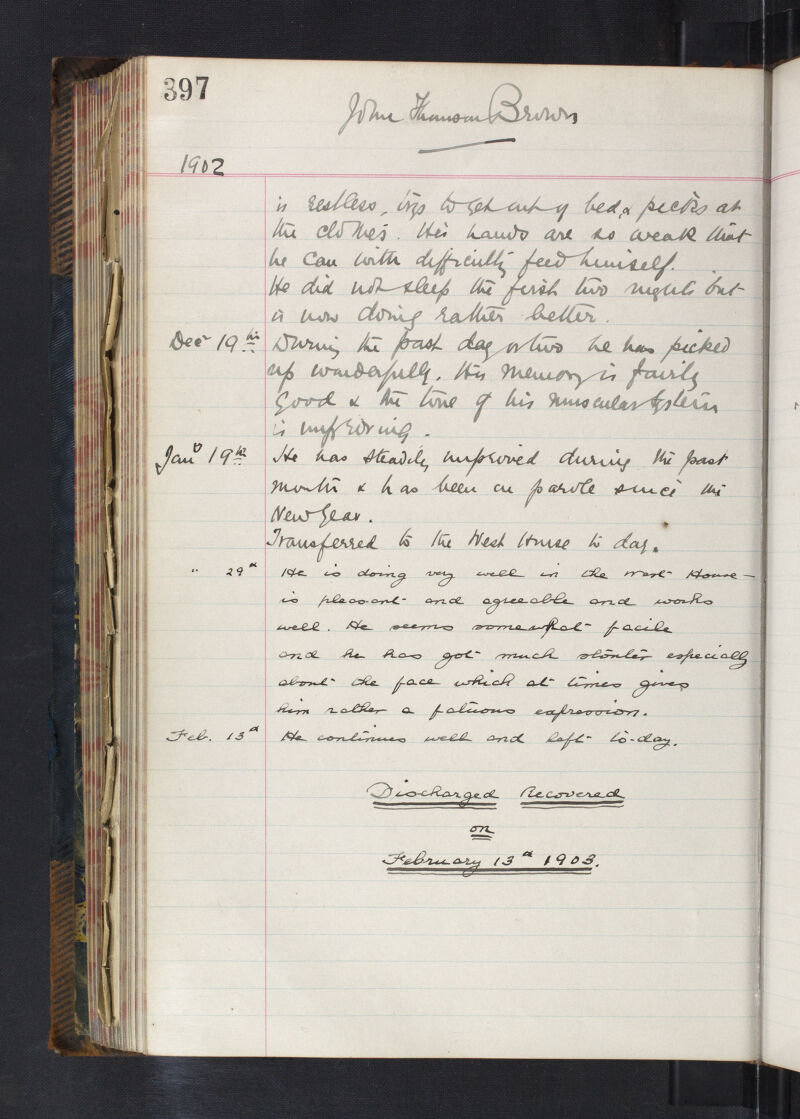 397
John Thomson Brown
1902
is restless, trys to get out of bed & picks at
the clothes. His hands are so weak that
he can with difficulty feed himself.
He did not sleep the first two nights but
is now doing rather better.
Decr 19th During the past day or two he has picked
up wonderfully. His memory is fairly
good & the tone of his muscular system
is improving.
Jany 19th He has steadily improved during the past
month & has been on parole since the
New Year.
Transferred to the West House to day.
" 29th He is doing very well in the West House –
is pleasant and agreeable and works
well. He seems somewhat facile
and he has got much stouter especially
about the face which at times gives
him rather a fatuous expression.
Feb. 13th He continues well and left to-day.
Discharged Recovered
on
February 13th 1903.